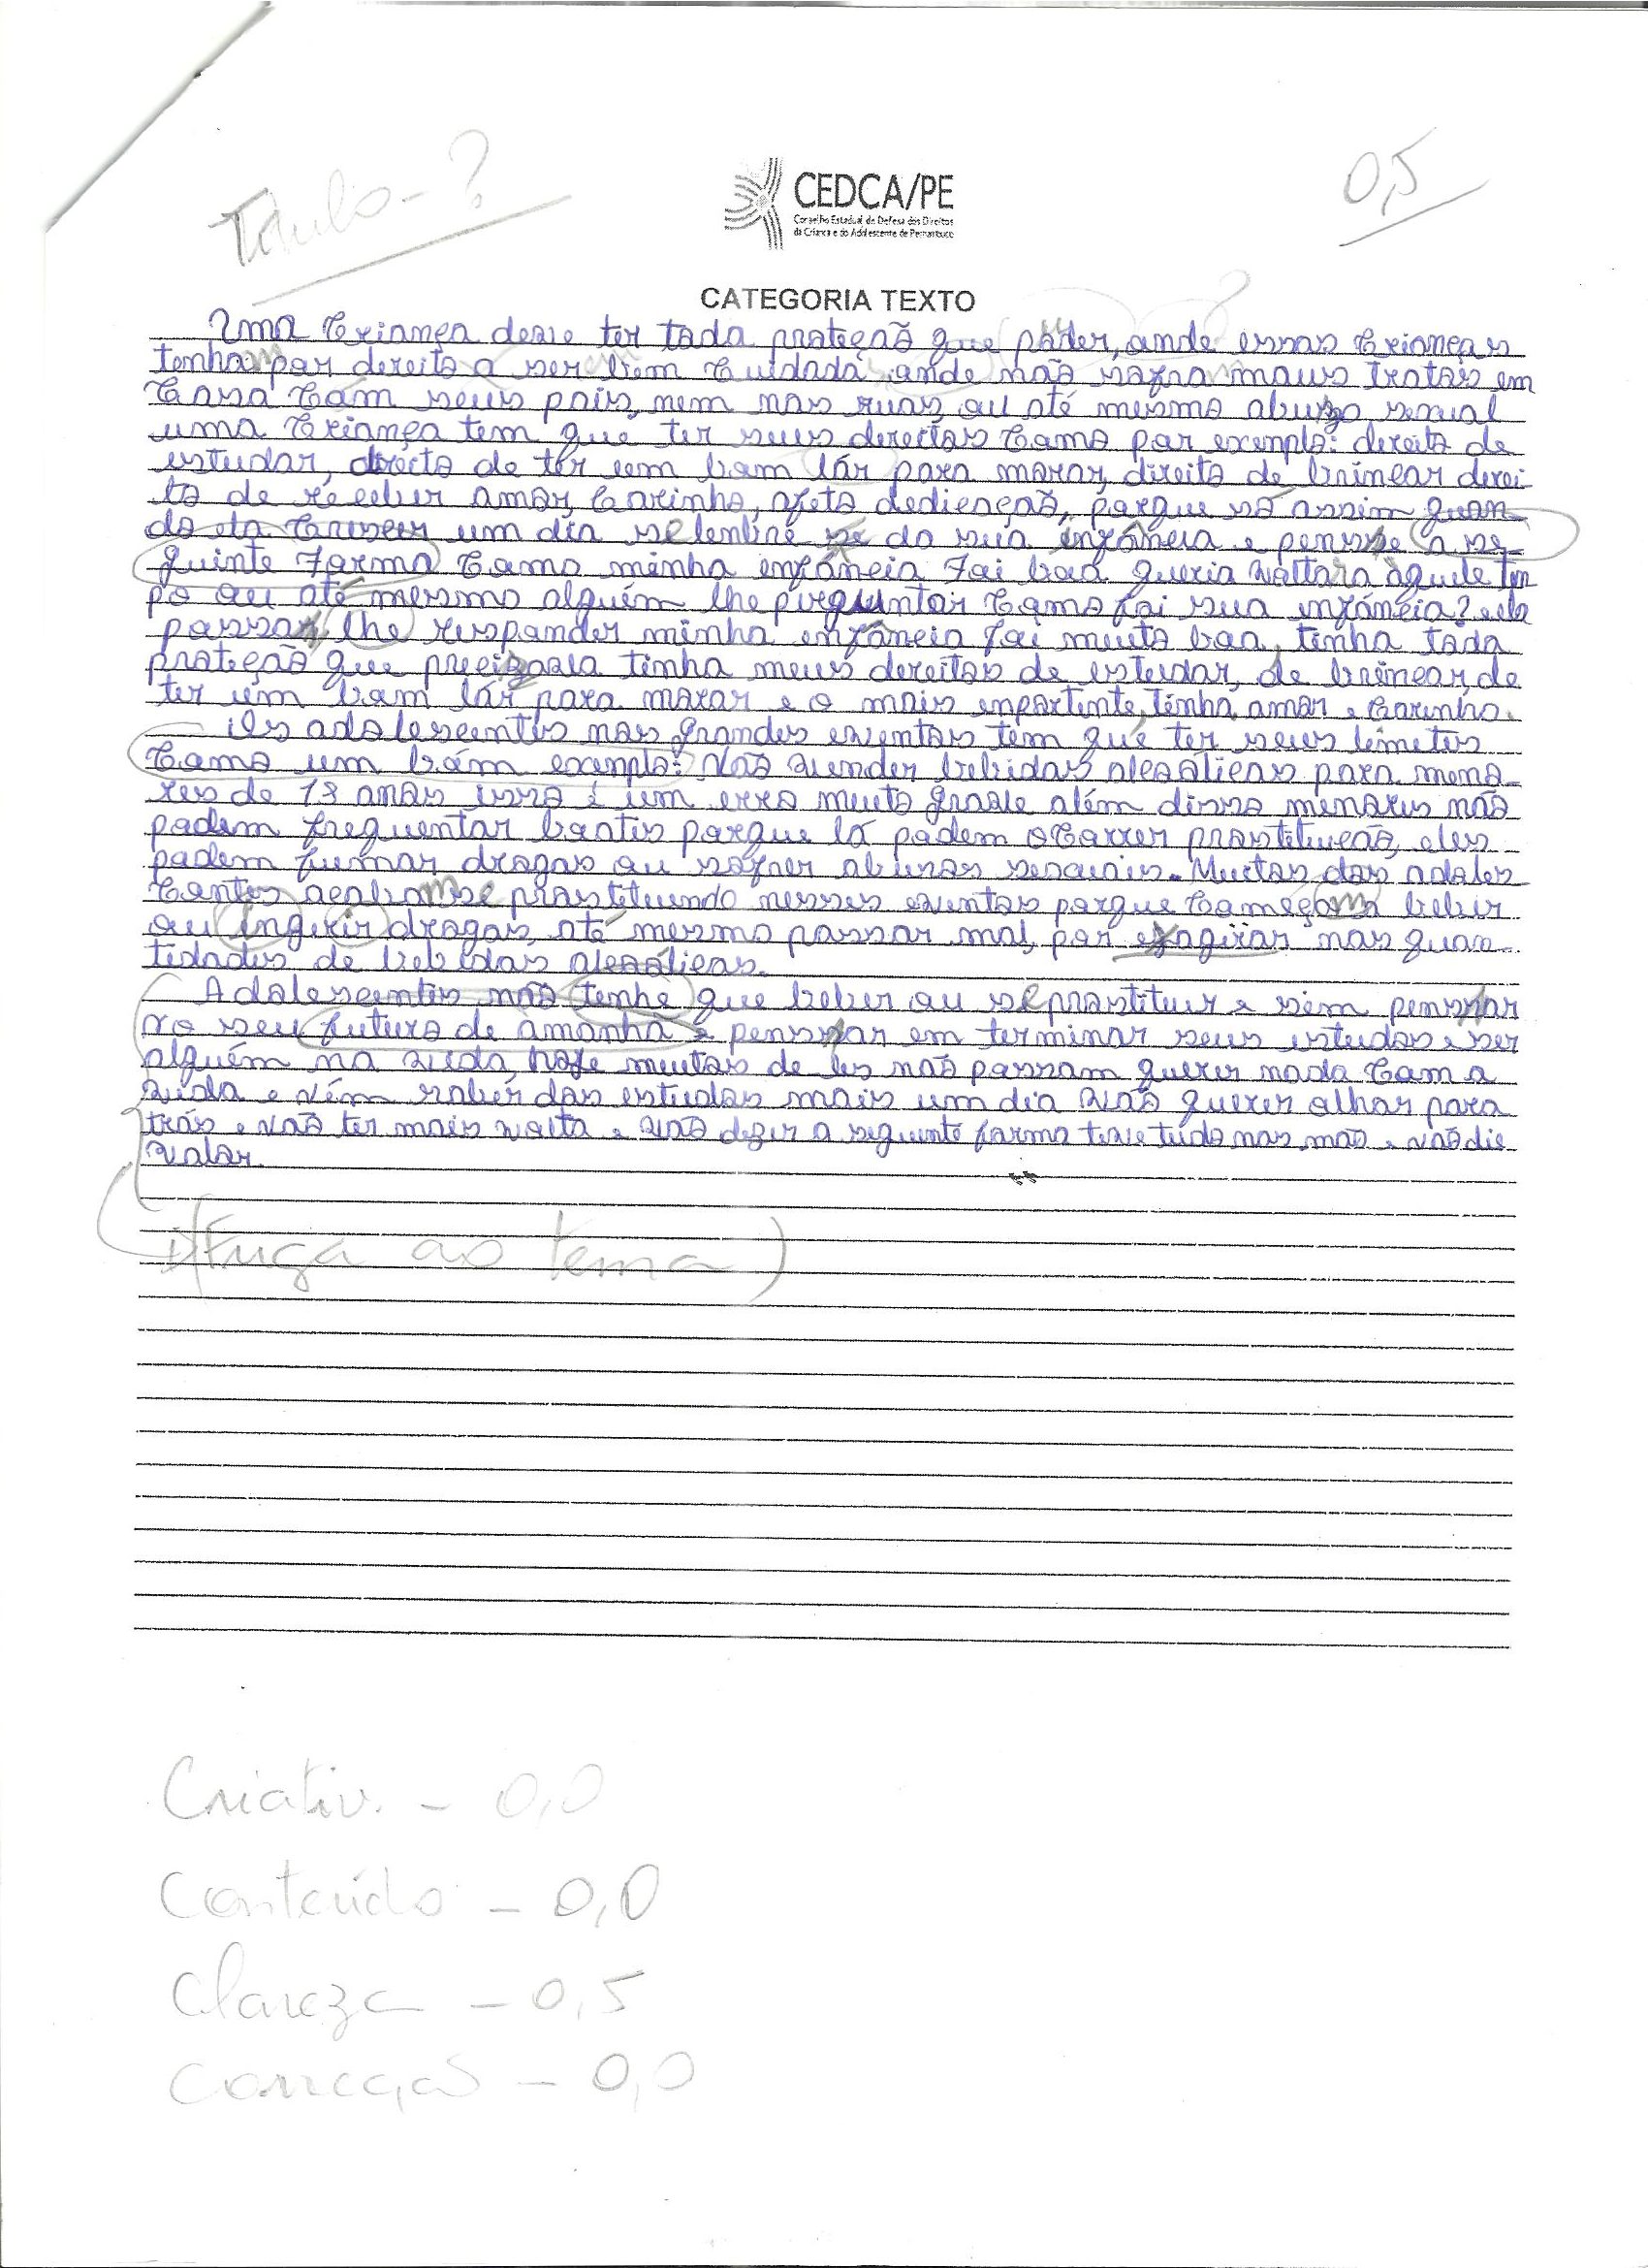 Título - ?
0,5
CEDCA/PE
Conselho Estadual de Defesa dos Direitos
da Criança e do Adolescente de Pernambuco
CATEGORIA TEXTO
Uma Criança deve ter toda proteção que poder, onde essas Crianças
tenham por direito a ser bem Cuidada onde não sofra maus tratos em
Casa Com seus pais, nem nas ruas, ou até mesmo abuso sexual
uma Criança tem que ter seus direitos Como por exemplo: direito de
estudar, direito de ter um bom lár para morar, direito de brincar direi
to de receber amor, Carinho, afeto dedicação, porque só assim quan
do ela Crescer um dia se lembre se da sua infância e pensse a se-
guinte Forma Como minha infância Foi boa queria voltar a àquele tem
po ou até mesmo alguém lhe perguntar Como foi sua infância? ela
possa lhe responder minha infância foi muito boa, tinha toda
proteção que precizava tinha meus direitos de estudar, de brincar, de
ter um bom lár para morar e o mais enportante, tinha amor e Carinho.
Os adolescentes nos grandes eventos tem que ter seus limites
Como um bom exemplo: Não vender bebidas alcoólicas para meno-
res de 18 anos isso é um erro muito grave além disso menores não
podem frequentar boates porque lá podem oCorrer prostituição, eles
podem fumar drogas ou sofrer abusos sexuais. Muitos dos adoles
Centes acabam se prostituindo nesses eventos porque Começam beber
ou ingerir drogas, até mesmo passar mal, por exagirar nas quan-
tidades de bebidas alcoólicas.
Adolescentes não tenhe que beber ou se prostituir e sim penssar
no seu futuro de amanhã e penssar em terminar seus estudos e ser
alguém na vida, hoje muitos de les não passam querer nada Com a
vida e Ném saber dos estudos mais um dia vão querer olhar para
trás e vão ter mais volta e vão dizer a seguinte forma teve tudo nas mão e não die
valor.
(Fuga ao tema)
Criativ. - 0,0
Conteúdo - 0,0
Clareza - 0,5
Correção - 0,0